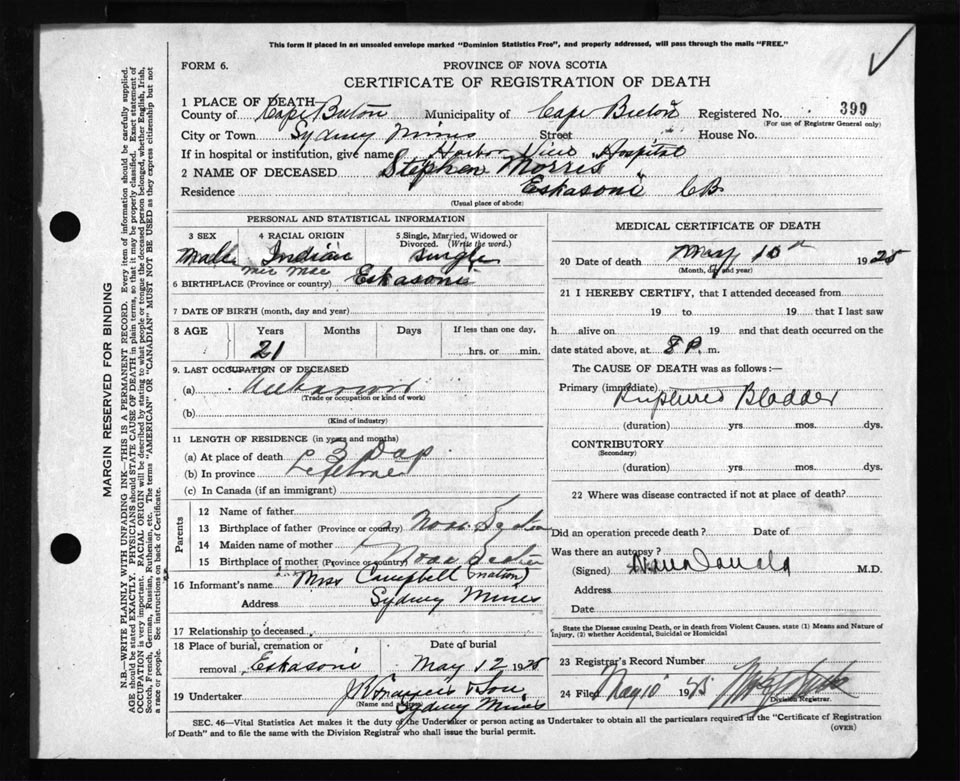 This form if placed in an unsealed envelope marked "Dominion Statistics Free", and properly addressed, will pass through the mails "FREE."
FORM 6.
PROVINCE OF NOVA SCOTIA
CERTIFICATE OF REGISTRATION OF DEATH
1 PLACE OF DEATH—
County of Cape Breton Municipality of Cape Breton Registered No. 399
(For use of Registrar General only)
City or Town Sydney Mines Street House No.
If in hospital or institution, give name Harbor View Hospital
2 NAME OF DECEASED Stephen Morris
Residence Eskasoni CB
(Usual place of abode)
PERSONAL AND STATISTICAL INFORMATION
3 SEX 4 RACIAL ORIGIN 5 Single, Married, Widowed or Divorced. (Write the word.)
Male Indian Single
Mic Mac
6 BIRTHPLACE (Province or country) Eskasoni
7 DATE OF BIRTH (month, day and year)
8 AGE Years Months Days If less than one day,
21 hrs. or min.
9. LAST OCCUPATION OF DECEASED
(a) Unknown
(Trade or occupation or kind of work)
(b)
(Kind of industry)
11 LENGTH OF RESIDENCE (in years and months)
(a) At place of death 3 Days
(b) In province Lifetime
(c) In Canada (if an immigrant)
Parents
12 Name of father
13 Birthplace of father (Province or country) Nova Scotia
14 Maiden name of mother
15 Birthplace of mother (Province or country) Nova Scotia
16 Informant's name Miss Campbell (matron)
Address Sydney Mines
17 Relationship to deceased
18 Place of burial, cremation or removal Eskasoni Date of burial May 12 1925
19 Undertaker & Son
(Name and address) Sydney Mines
MEDICAL CERTIFICATE OF DEATH
20 Date of death May 10th 1925
(Month, day and year)
21 I HEREBY CERTIFY, that I attended deceased from
19 to 19 that I last saw
h alive on 19 and that death occurred on
date stated above, at 8 P. m.
The CAUSE OF DEATH was as follows:—
Primary (immediate) Ruptured Bladder
(duration) yrs. mos. dys.
CONTRIBUTORY
(Secondary)
(duration) yrs. mos. dys.
22 Where was disease contracted if not at place of death?
Did an operation precede death? Date of
Was there an autopsy?
(Signed) M.D.
Address
Date
State the Disease causing Death, or in death from Violent Causes, state (1) Means and Nature of Injury, (2) whether Accidental, Suicidal or Homicidal
23 Registrar's Record Number
24 Filed May 10 1925
Division Registrar.
SEC. 46—Vital Statistics Act makes it the duty of the Undertaker or person acting as Undertaker to obtain all the particulars required in the "Certificate of Registration of Death" and to file the same with the Division Registrar who shall issue the burial permit.
(OVER)
MARGIN RESERVED FOR BINDING
N.B.—WRITE PLAINLY WITH UNFADING INK—THIS IS A PERMANENT RECORD. Every item of information should be carefully supplied.
AGE should be stated EXACTLY. PHYSICIANS should STATE CAUSE OF DEATH in plain terms, so that it may be properly classified. Exact statement of
OCCUPATION is very important. RACIAL ORIGIN will be described by stating to what people or tongue the deceased person belonged, whether English, Irish,
Scotch, French, German, Russian, Ruthenian, etc. The terms "AMERICAN" OR "CANADIAN" MUST NOT BE USED as they express citizenship but not
a race or people. See instructions on back of Certificate.